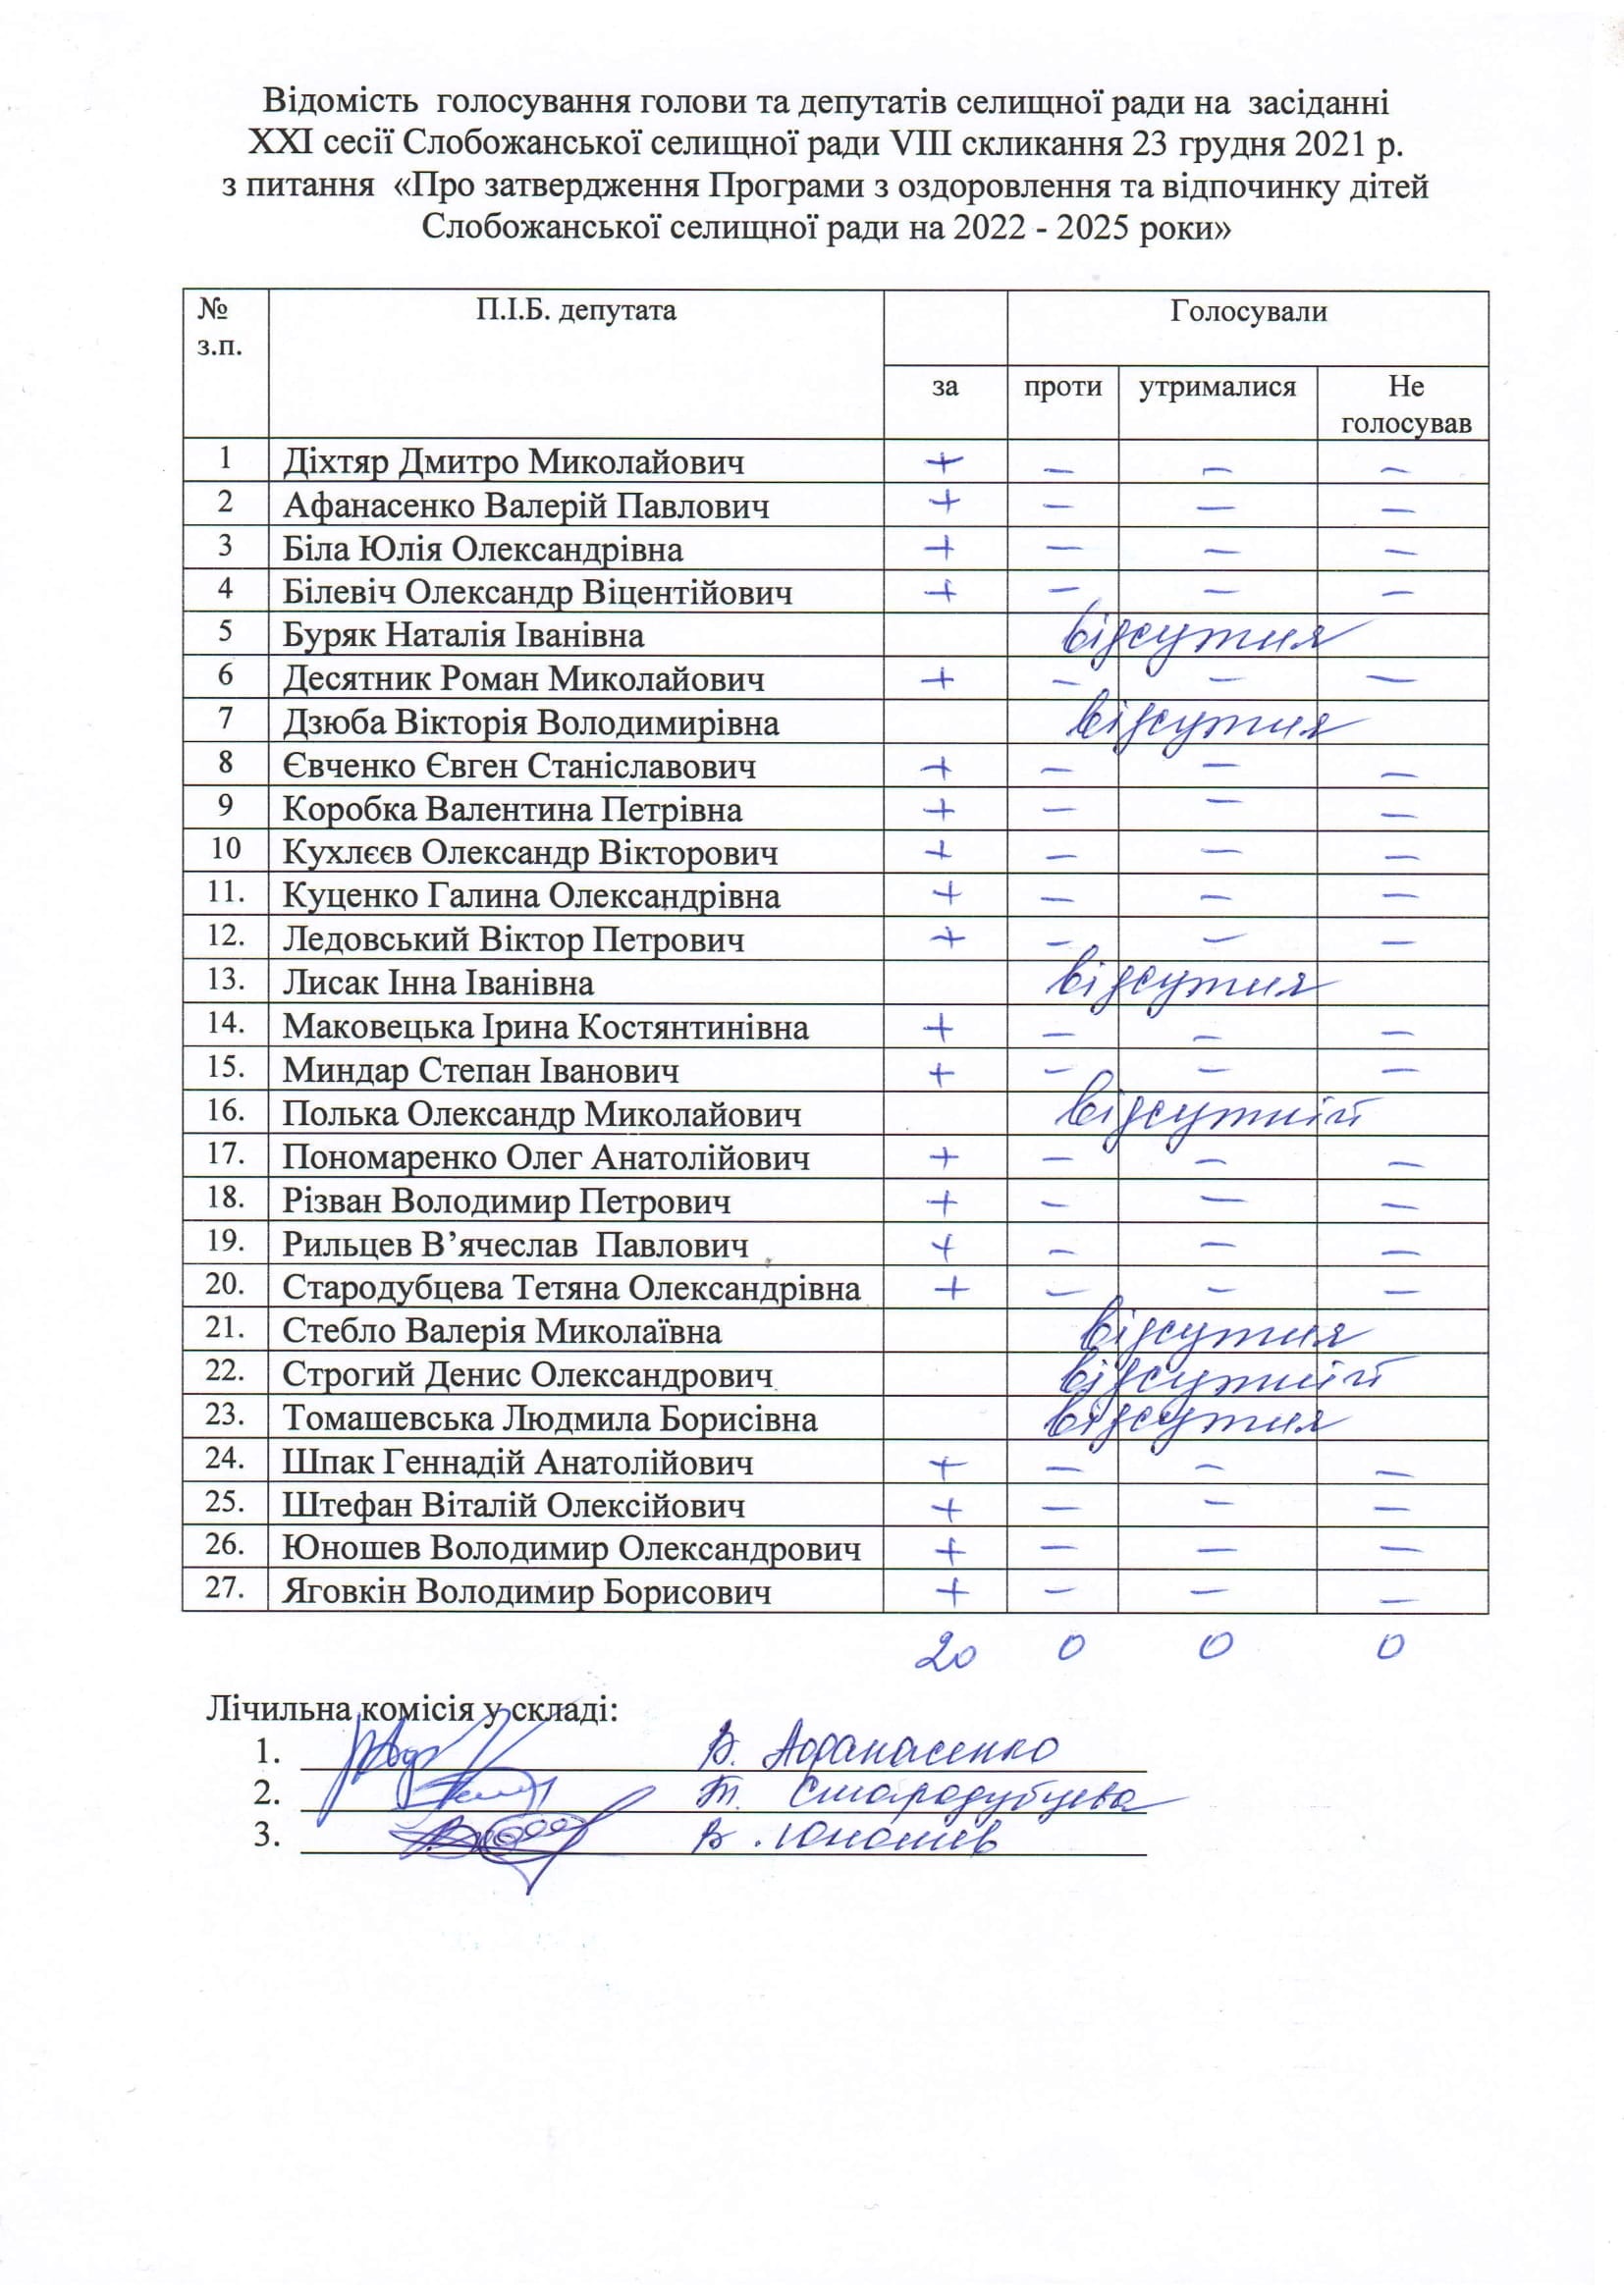 Відомість голосування голови та депутатів селищної ради на засіданні
XXI сесії Слобожанської селищної ради VIII скликання 23 грудня 2021 р.
з питання «Про затвердження Програми з оздоровлення та відпочинку дітей
Слобожанської селищної ради на 2022 - 2025 роки»
№ з.п. П.І.Б. депутата Голосували
за проти утрималися Не голосував
1 Діхтяр Дмитро Миколайович + — — —
2 Афанасенко Валерій Павлович + — — —
3 Біла Юлія Олександрівна + — — —
4 Білевіч Олександр Віцентійович + — — —
5 Буряк Наталія Іванівна відсутня
6 Десятник Роман Миколайович + — — —
7 Дзюба Вікторія Володимирівна відсутня
8 Євченко Євген Станіславович + — — —
9 Коробка Валентина Петрівна + — — —
10 Кухлєєв Олександр Вікторович + — — —
11. Куценко Галина Олександрівна + — — —
12. Ледовський Віктор Петрович + — — —
13. Лисак Інна Іванівна відсутня
14. Маковецька Ірина Костянтинівна + — — —
15. Миндар Степан Іванович + — — —
16. Полька Олександр Миколайович відсутній
17. Пономаренко Олег Анатолійович + — — —
18. Різван Володимир Петрович + — — —
19. Рильцев В’ячеслав Павлович + — — —
20. Стародубцева Тетяна Олександрівна + — — —
21. Стебло Валерія Миколаївна відсутня
22. Строгий Денис Олександрович відсутній
23. Томашевська Людмила Борисівна відсутня
24. Шпак Геннадій Анатолійович + — — —
25. Штефан Віталій Олексійович + — — —
26. Юношев Володимир Олександрович + — — —
27. Яговкін Володимир Борисович + — — —
20 0 0 0
Лічильна комісія у складі:
1. В. Афанасенко
2. Т. Стародубцева
3. В. Юношев